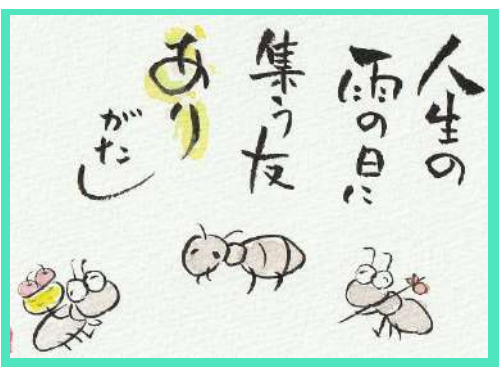 人生の
雨の日に
集う友
あり
がたし